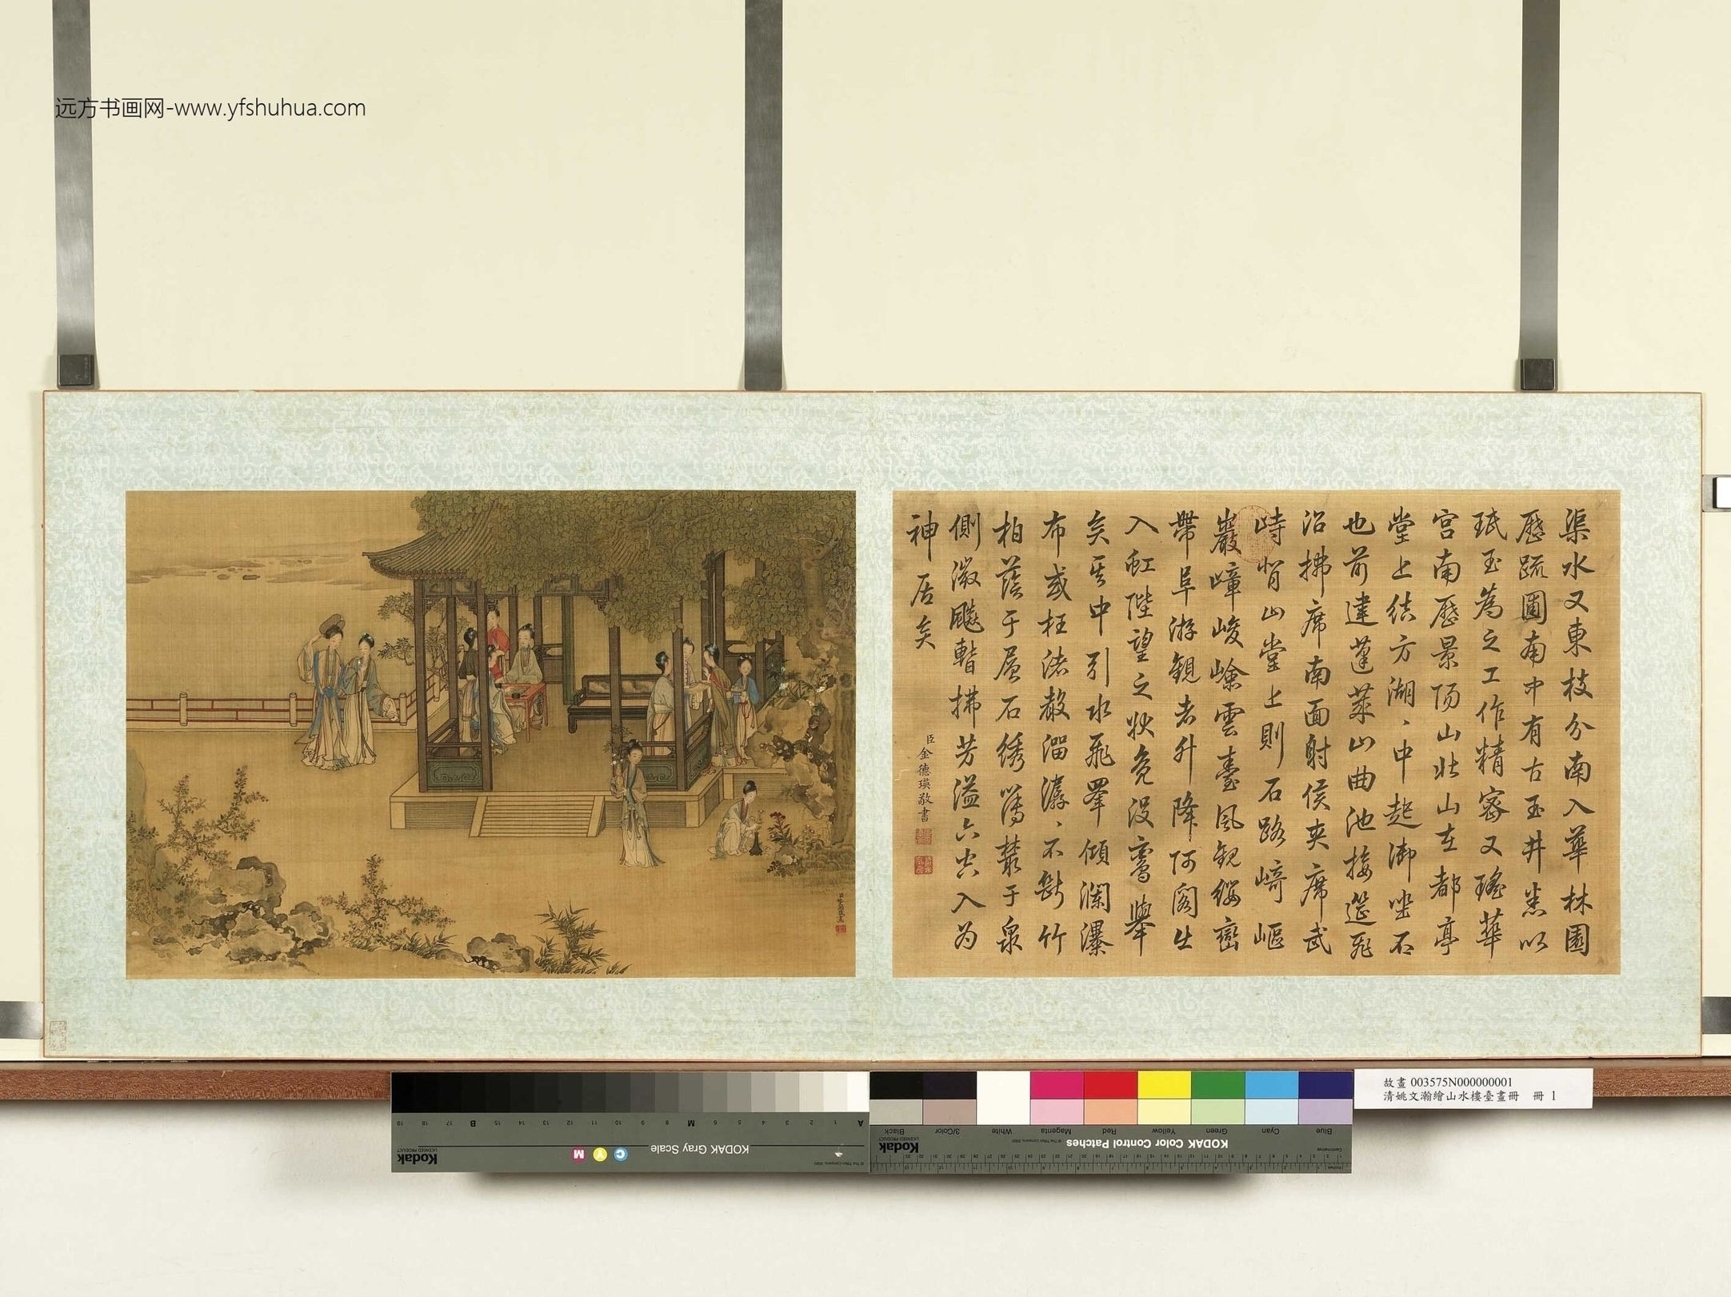 远方书画网-www.yfshuhua.com
渠水又東枝分南入華林園
歷疏圃南圃中有古玉井悉以
珉玉為之工作精密又瑤華
宮南歷景陽山北山在都亭
堂上結方湖、中起御坐石
也前建蓬萊山曲池接筵飛
沼拂席南面射侯夾席武
峙背山堂上則石路崎嶇
巖嶂峻嶮雲臺風觀纓巒
帶阜游觀者升降阿閣出
入虹陛望之狀鳧没鸞舉
矣其中引水飛睪傾瀾瀑
布或枉渚聲溜潺、不斷竹
柏蔭于層石繡薄叢于泉
側微飈暫拂芳溢六空入為
神居矣
臣金德瑛敬書
故畫 003575N000000001
清姚文瀚繪山水樓臺畫冊 冊 1
KODAK Gray Scale
C Y M
Kodak
A 1 2 3 4 5 6 M 8 9 10 11 12 13 14 15 B 17 18 19
KODAK Color Control Patches
Kodak
Blue Cyan Green Yellow Red Magenta White 3/Color Black